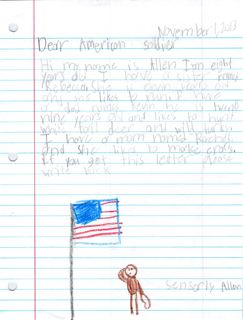 November 1, 2013
Dear American soldier
Hi my name is Allen I'm eight
years old I have a sister named
Rebecca. She is years old
and she likes to I have
a dad named he is
nine years old and likes to hunt
white tail deer and wild
I have a mom named
and she likes to make
If you get this letter please
write back
Sensorly Allen